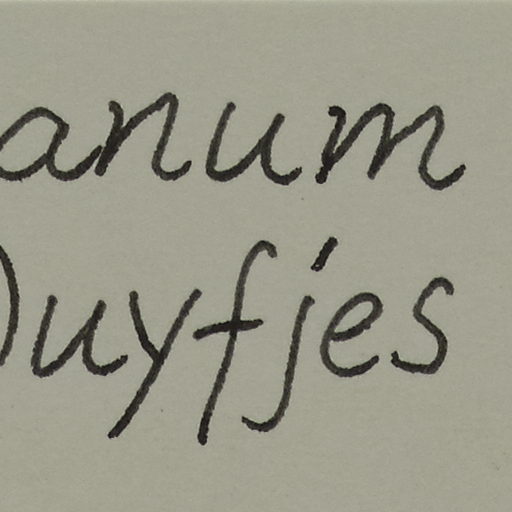 anum
Duyfjes